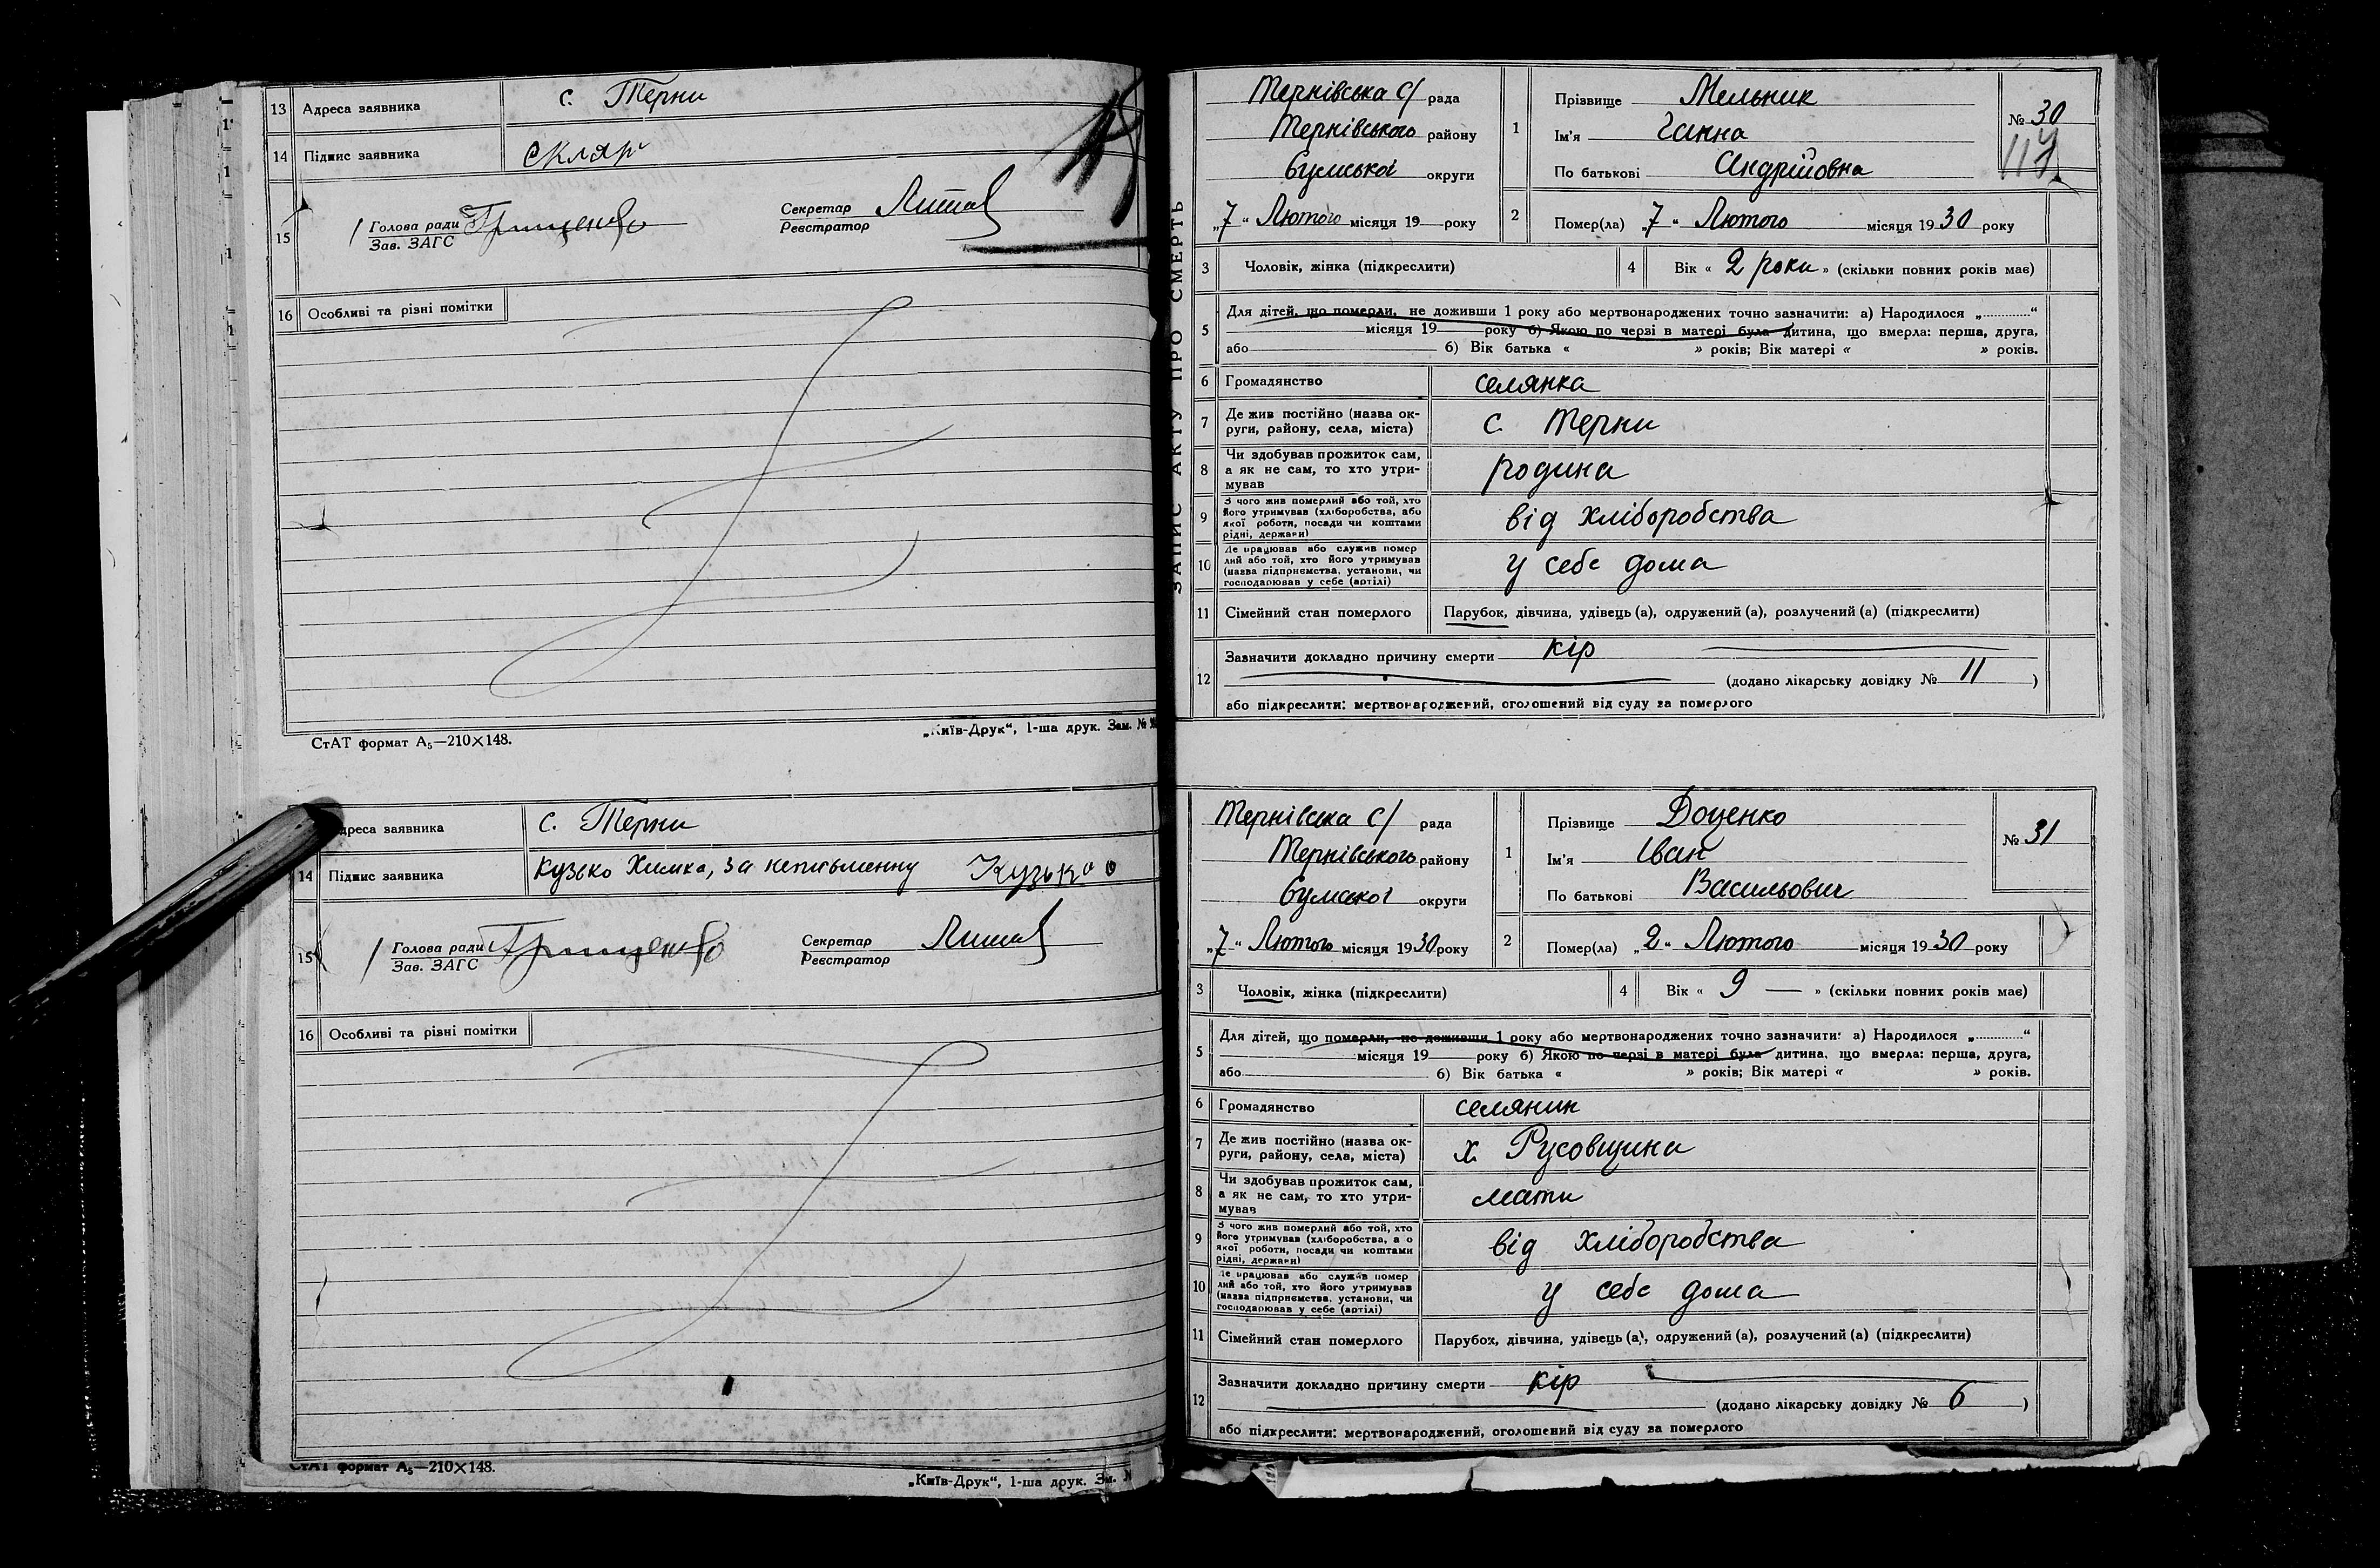 13 Адреса заявника с. Терни
14 Підпис заявника Скляр
15 Голова ради Грищенко Секретар
Зав. ЗАГС Реєстратор
16 Особливі та різні помітки
СтАТ формат А5—210×148.
„Київ-Друк“, 1-ша друк. Зам. №
Адреса заявника с. Терни
14 Підпис заявника Кузько Химка, за неписьменну Кузько
15 Голова ради Грищенко Секретар
Зав. ЗАГС Реєстратор
16 Особливі та різні помітки
СтАТ формат А5—210×148.
„Київ-Друк“, 1-ша друк. Зам.
ЗАПИС АКТУ ПРО СМЕРТЬ
Тернівська с/ рада
Тернівського району
Сумської округи
„7“ Лютого місяця 19 року
1 Прізвище Мельник
Ім'я Ганна
По батькові Андрійовна
№ 30
117
2 Помер(ла) „7“ Лютого місяця 1930 року
3 Чоловік, жінка (підкреслити) 4 Вік « 2 роки » (скільки повних років має)
5 Для дітей, що померли, не доживши 1 року або мертвонароджених точно зазначити: а) Народилося „............“
місяця 19 року б) Якою по черзі в матері була дитина, що вмерла: перша, друга,
або б) Вік батька « » років; Вік матері « » років.
6 Громадянство селянка
7 Де жив постійно (назва ок-
руги, району, села, міста) с. Терни
8 Чи здобував прожиток сам,
а як не сам, то хто утри-
мував родина
9 З чого жив померлий або той, хто
його утримував (хліборобства, або
якої роботи, посади чи коштами
рідні, держави) від хліборобства
10 Де працював або служив помер
лий або той, хто його утримував
(назва підприємства, установи, чи
господарював у себе (артілі) у себе дома
11 Сімейний стан померлого Парубок, дівчина, удівець (а), одружений (а), розлучений (а) (підкреслити)
12 Зазначити докладно причину смерти кір
(додано лікарську довідку № 11 )
або підкреслити: мертвонароджений, оголошений від суду за померлого
Тернівська с/ рада
Тернівського району
Сумської округи
„7“ Лютого місяця 1930 року
1 Прізвище Доценко
Ім'я Іван
По батькові Васильович
№ 31
2 Помер(ла) „2“ Лютого місяця 1930 року
3 Чоловік, жінка (підкреслити) 4 Вік « 9 — » (скільки повних років має)
5 Для дітей, що померли, не доживши 1 року або мертвонароджених точно зазначити: а) Народилося „............“
місяця 19 року б) Якою по черзі в матері була дитина, що вмерла: перша, друга,
або б) Вік батька « » років; Вік матері « » років.
6 Громадянство селянин
7 Де жив постійно (назва ок-
руги, району, села, міста) х. Русовщина
8 Чи здобував прожиток сам,
а як не сам, то хто утри-
мував мати
9 З чого жив померлий або той, хто
його утримував (хліборобства, а о
якої роботи, посади чи коштами
рідні, держави) від хліборобства
10 Де працював або служив помер
лий або той, хто його утримував
(назва підприємства, установи, чи
господарював у себе (артілі) у себе дома
11 Сімейний стан померлого Парубох, дівчина, удівець (а), одружений (а), розлучений (а) (підкреслити)
12 Зазначити докладно причину смерти кір
(додано лікарську довідку № 6 )
або підкреслити: мертвонароджений, оголошений від суду за померлого